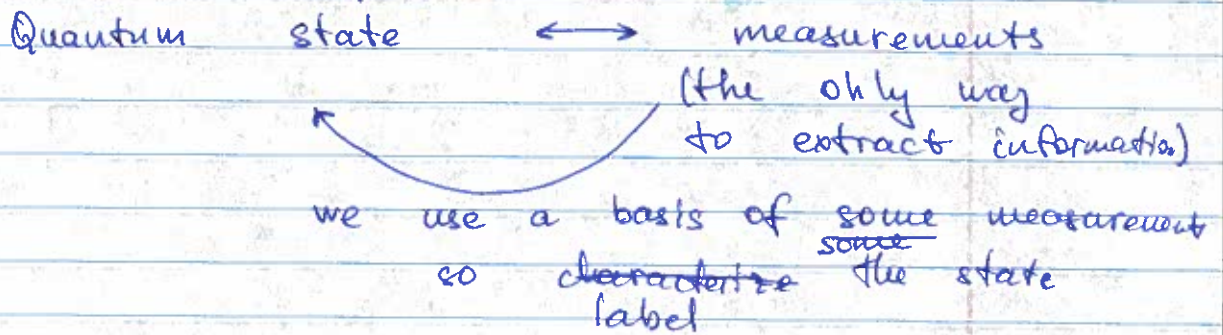 Quantum state ↔ measurements
(the only way
to extract information)
we use a basis of some measurement
some
so characterize the state
label